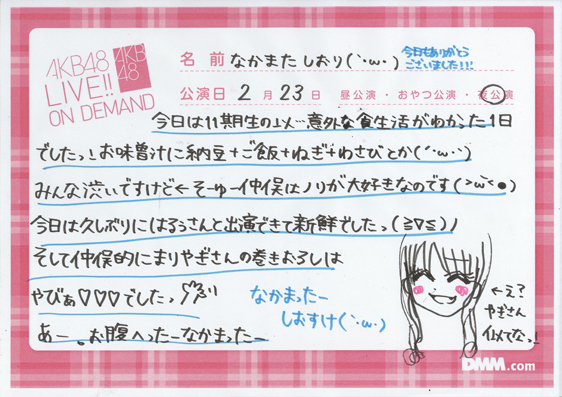 AKB48
LIVE!!
ON DEMAND
AKB
48
名 前 なかまた しおり (`・ω・)
今日もありがとう
ございました!!!
公演日 2 月 23 日 昼公演・おやつ公演・夜公演
今日は11期生の上メ…意外な食生活がわかった1日
でしたっ!お味噌汁に納豆+ご飯+ねぎ+わさびとか(´・ω・`)
みんな渋いですけど←そーゆー仲俣はノリが大好きなのです(>ω<●)
今日は久しぶりにはるぅさんと出演できて新鮮でしたっ(≧∇≦)ノ
そして仲俣的にまりやぎさんの巻きおろしは
やびぁ♡♡♡でしたっ
あー。お腹へったーなかまったー
なかまったー
しおすけ(`・ω・)
←え?
やぎさん
似てなっ!
DMM.com